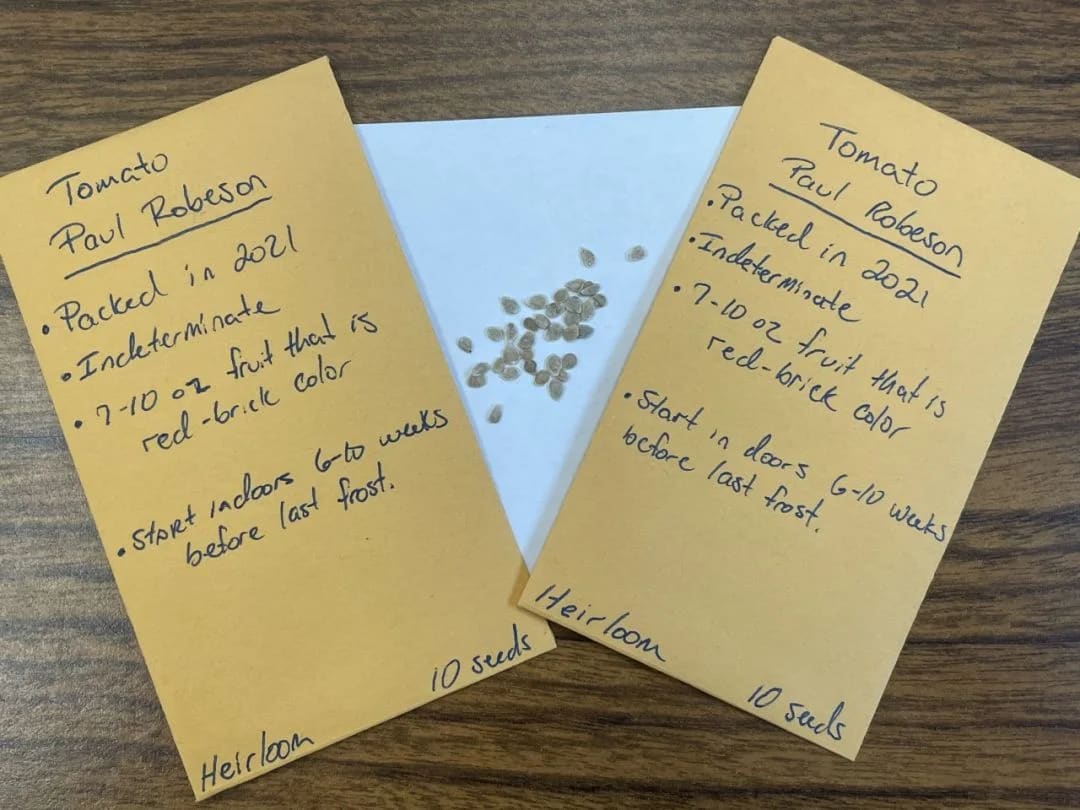 Tomato
Paul Robeson
• Packed in 2021
• Indeterminate
• 7-10 oz fruit that is
red-brick color
• Start indoors 6-10 weeks
before last frost.
10 seeds
Heirloom
Tomato
Paul Robeson
• Packed in 2021
• Indeterminate
• 7-10 oz fruit that is
red-brick color
• Start in doors 6-10 weeks
before last frost.
Heirloom
10 seeds